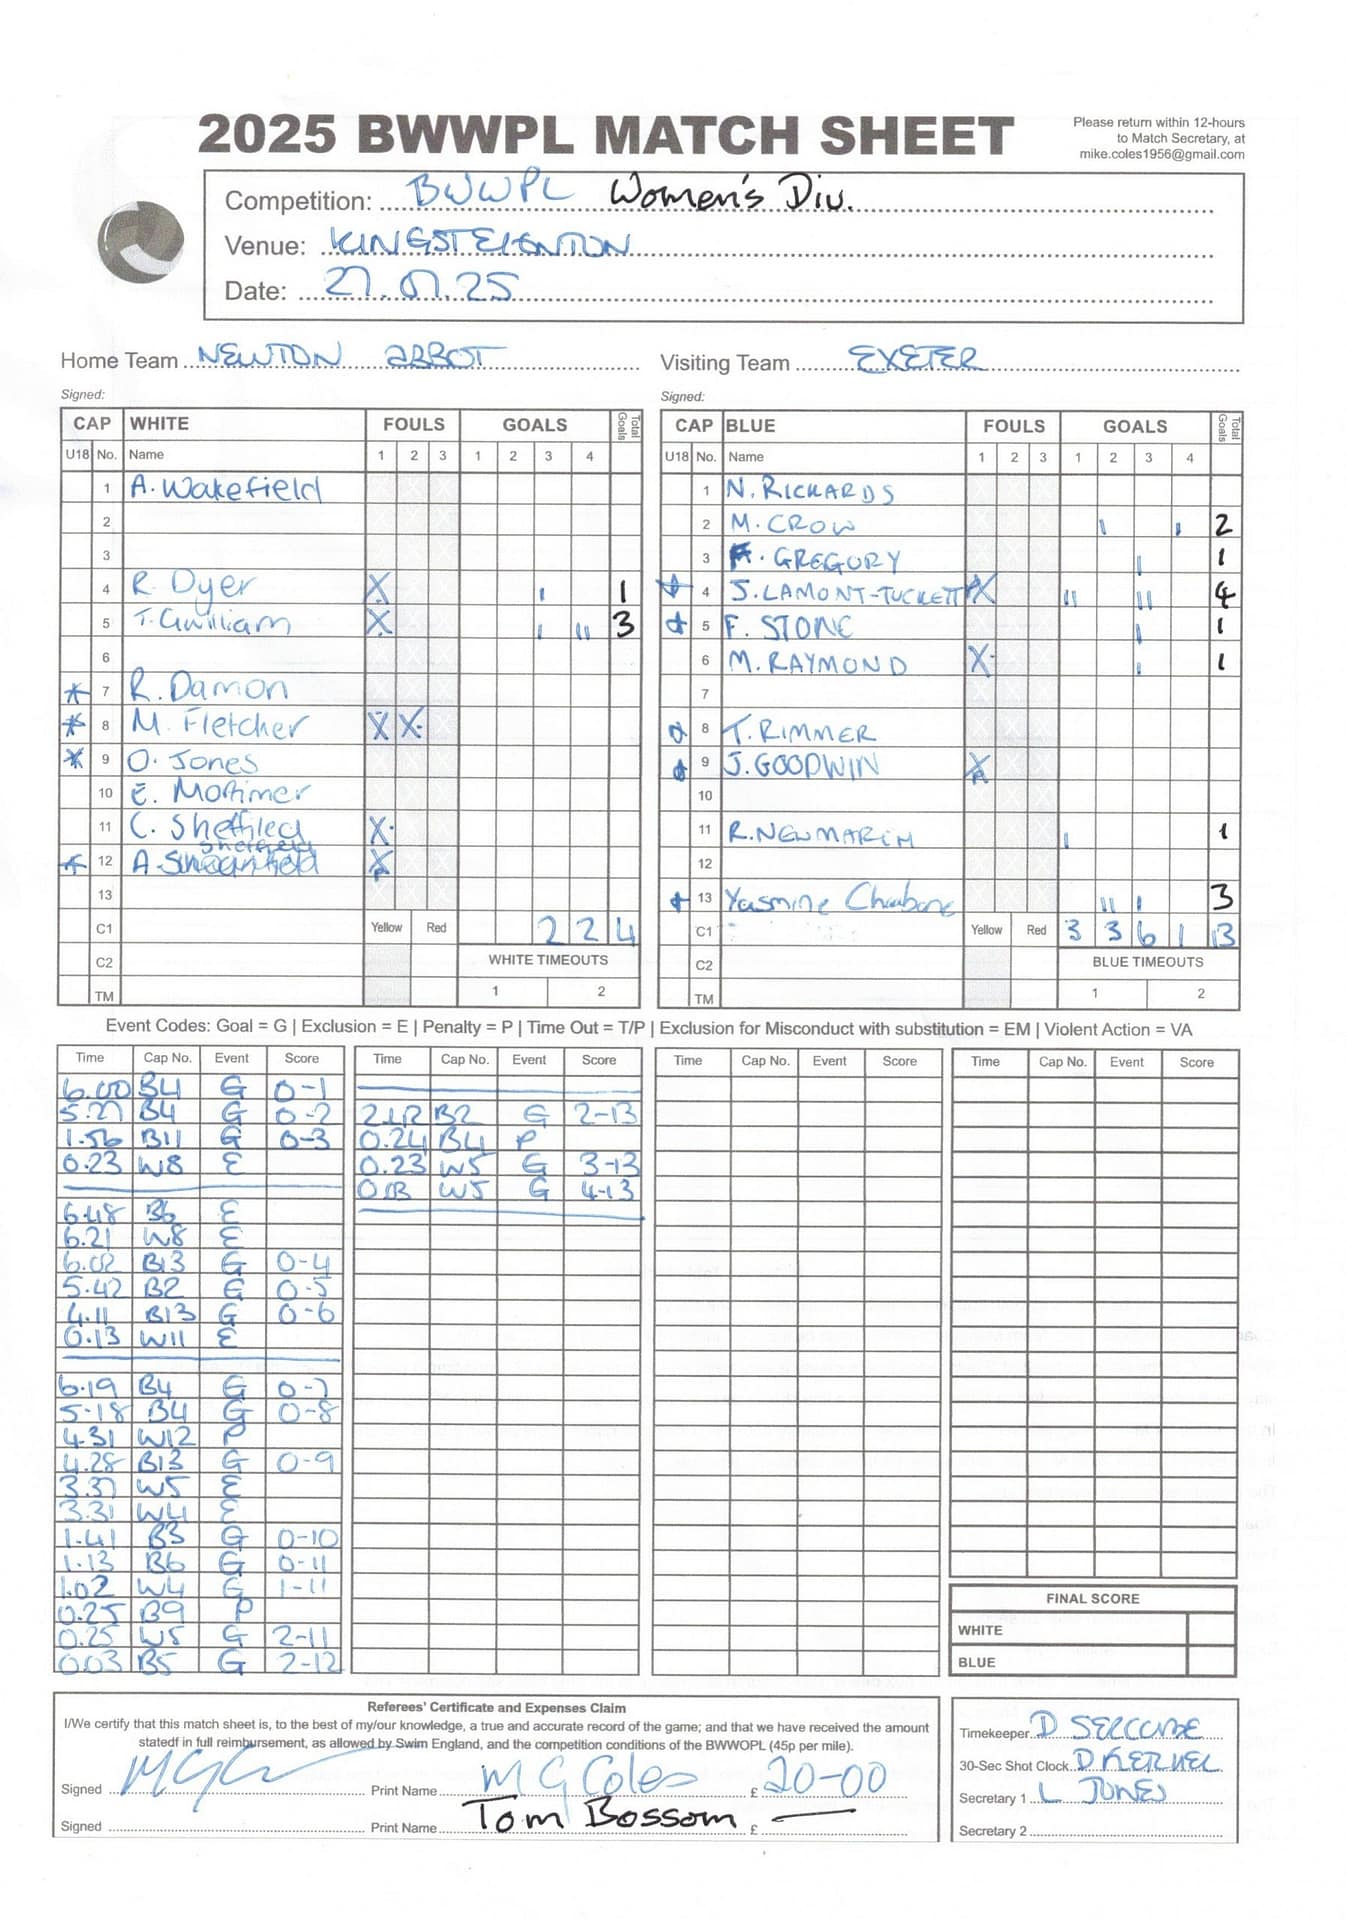 2025 BWWPL MATCH SHEET
Please return within 12-hours
to Match Secretary, at
mike.coles1956@gmail.com
Competition: BWWPL Women's Div.
Venue: KINGSTEIGNTON
Date: 27.07.25
Home Team NEWTON ABBOT
Visiting Team EXETER
Signed:
Signed:
CAP WHITE FOULS GOALS Total Goals
U18 No. Name 1 2 3 1 2 3 4
1 A. Wakefield
2
3
4 R. Dyer X I 1
5 T. Gwilliam X I II 3
6
* 7 R. Damon
* 8 M. Fletcher X X
* 9 O. Jones
10 E. Mortimer
11 C. Sheffiled X
* 12 A. X P
13
C1 Yellow Red 2 2 4
C2 WHITE TIMEOUTS
TM 1 2
CAP BLUE FOULS GOALS Total Goals
U18 No. Name 1 2 3 1 2 3 4
1 N. RICKARDS
2 M. CROW I I 2
3 . GREGORY I 1
4 J. LAMONT-TUCKETT X II II 4
5 F. STONE I 1
6 M. RAYMOND X I 1
7
8 T. RIMMER
9 J. GOODWIN X P
10
11 R. NEWMARCH I 1
12
13 Yasmine II I 3
C1 Yellow Red 3 3 6 1 13
C2 BLUE TIMEOUTS
TM 1 2
Event Codes: Goal = G | Exclusion = E | Penalty = P | Time Out = T/P | Exclusion for Misconduct with substitution = EM | Violent Action = VA
Time Cap No. Event Score
6.00 B4 G 0-1
5.27 B4 G 0-2
1.56 B11 G 0-3
0.23 W8 E
6.48 B6 E
6.21 W8 E
6.02 B13 G 0-4
5.42 B2 G 0-5
4.11 B13 G 0-6
0.13 W11 E
6.19 B4 G 0-7
5.18 B4 G 0-8
4.31 W12 P
4.28 B13 G 0-9
3.37 W5 E
3.31 W4 E
1.41 B3 G 0-10
1.13 B6 G 0-11
1.02 W4 G 1-11
0.25 B9 P
0.25 W5 G 2-11
0.03 B5 G 2-12
Time Cap No. Event Score
2.42 B2 G 2-13
0.24 B4 P
0.23 W5 G 3-13
W5 G 4-13
Time Cap No. Event Score
Time Cap No. Event Score
FINAL SCORE
WHITE
BLUE
Referees' Certificate and Expenses Claim
I/We certify that this match sheet is, to the best of my/our knowledge, a true and accurate record of the game; and that we have received the amount
statedf in full reimbursement, as allowed by Swim England, and the competition conditions of the BWWOPL (45p per mile).
Signed Print Name M G Coles £ 20-00
Signed Print Name Tom Bossom £ —
Timekeeper D SERCOMBE
30-Sec Shot Clock D KERNEL
Secretary 1 L JONES
Secretary 2